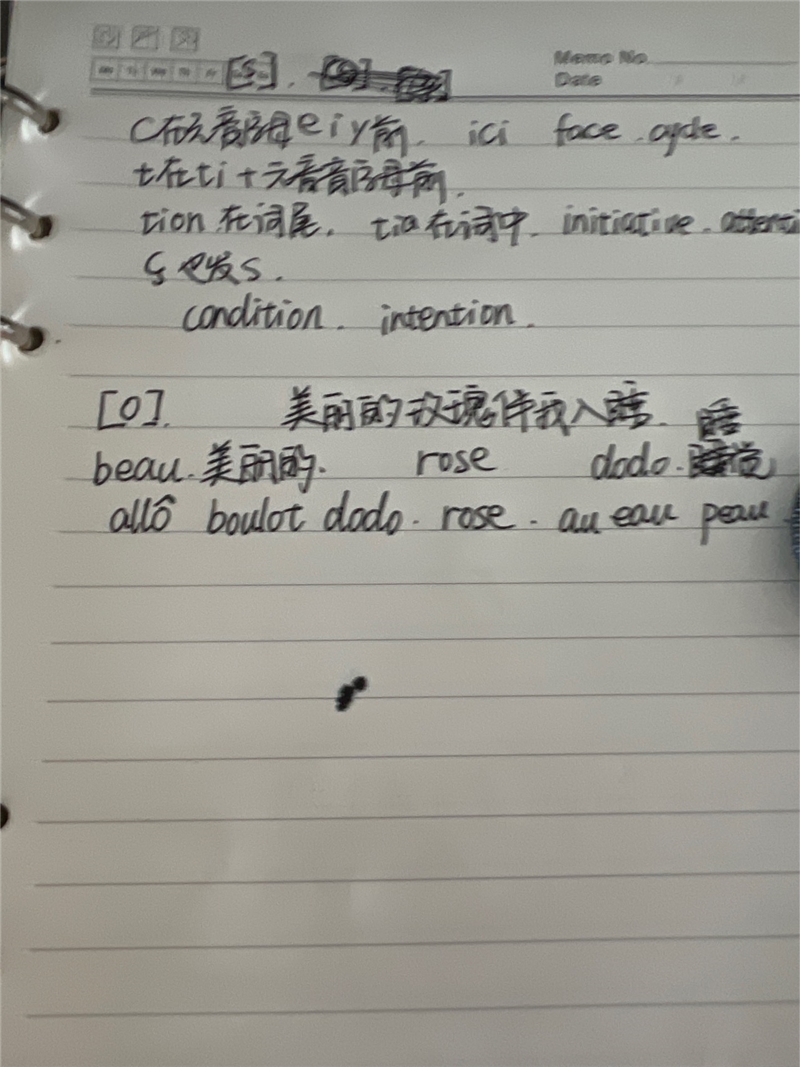 Memo No.
Date
[s].
C在元音字母e i y前. ici face. cycle.
t在ti+元音音字母前.
tion在词尾. tia在词中. initiative.
ç也发s.
condition. intention.
[o]. 美丽的玫瑰伴我入睡. 睡
beau.美丽的. rose dodo.睡觉
allô boulot dodo. rose. au eau peau